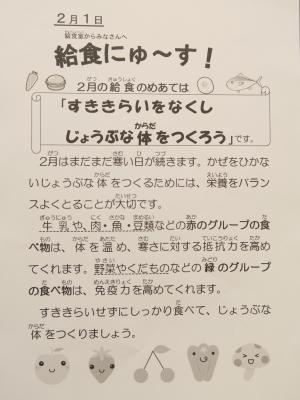 ２月１日
給食室からみなさんへ
給食にゅ～す！
２月の給食のめあては
「すききらいをなくし
じょうぶな体をつくろう」です。
２月はまだまだ寒い日が続きます。かぜをひかな
いじょうぶな体をつくるためには、栄養をバラン
スよくとることが大切です。
牛乳や、肉・魚・豆類などの赤のグループの食
べ物は、体を温め、寒さに対する抵抗力を高め
てくれます。野菜やくだものなどの緑のグループ
の食べ物は、免疫力を高めてくれます。
すききらいせずにしっかり食べて、じょうぶな
体をつくりましょう。